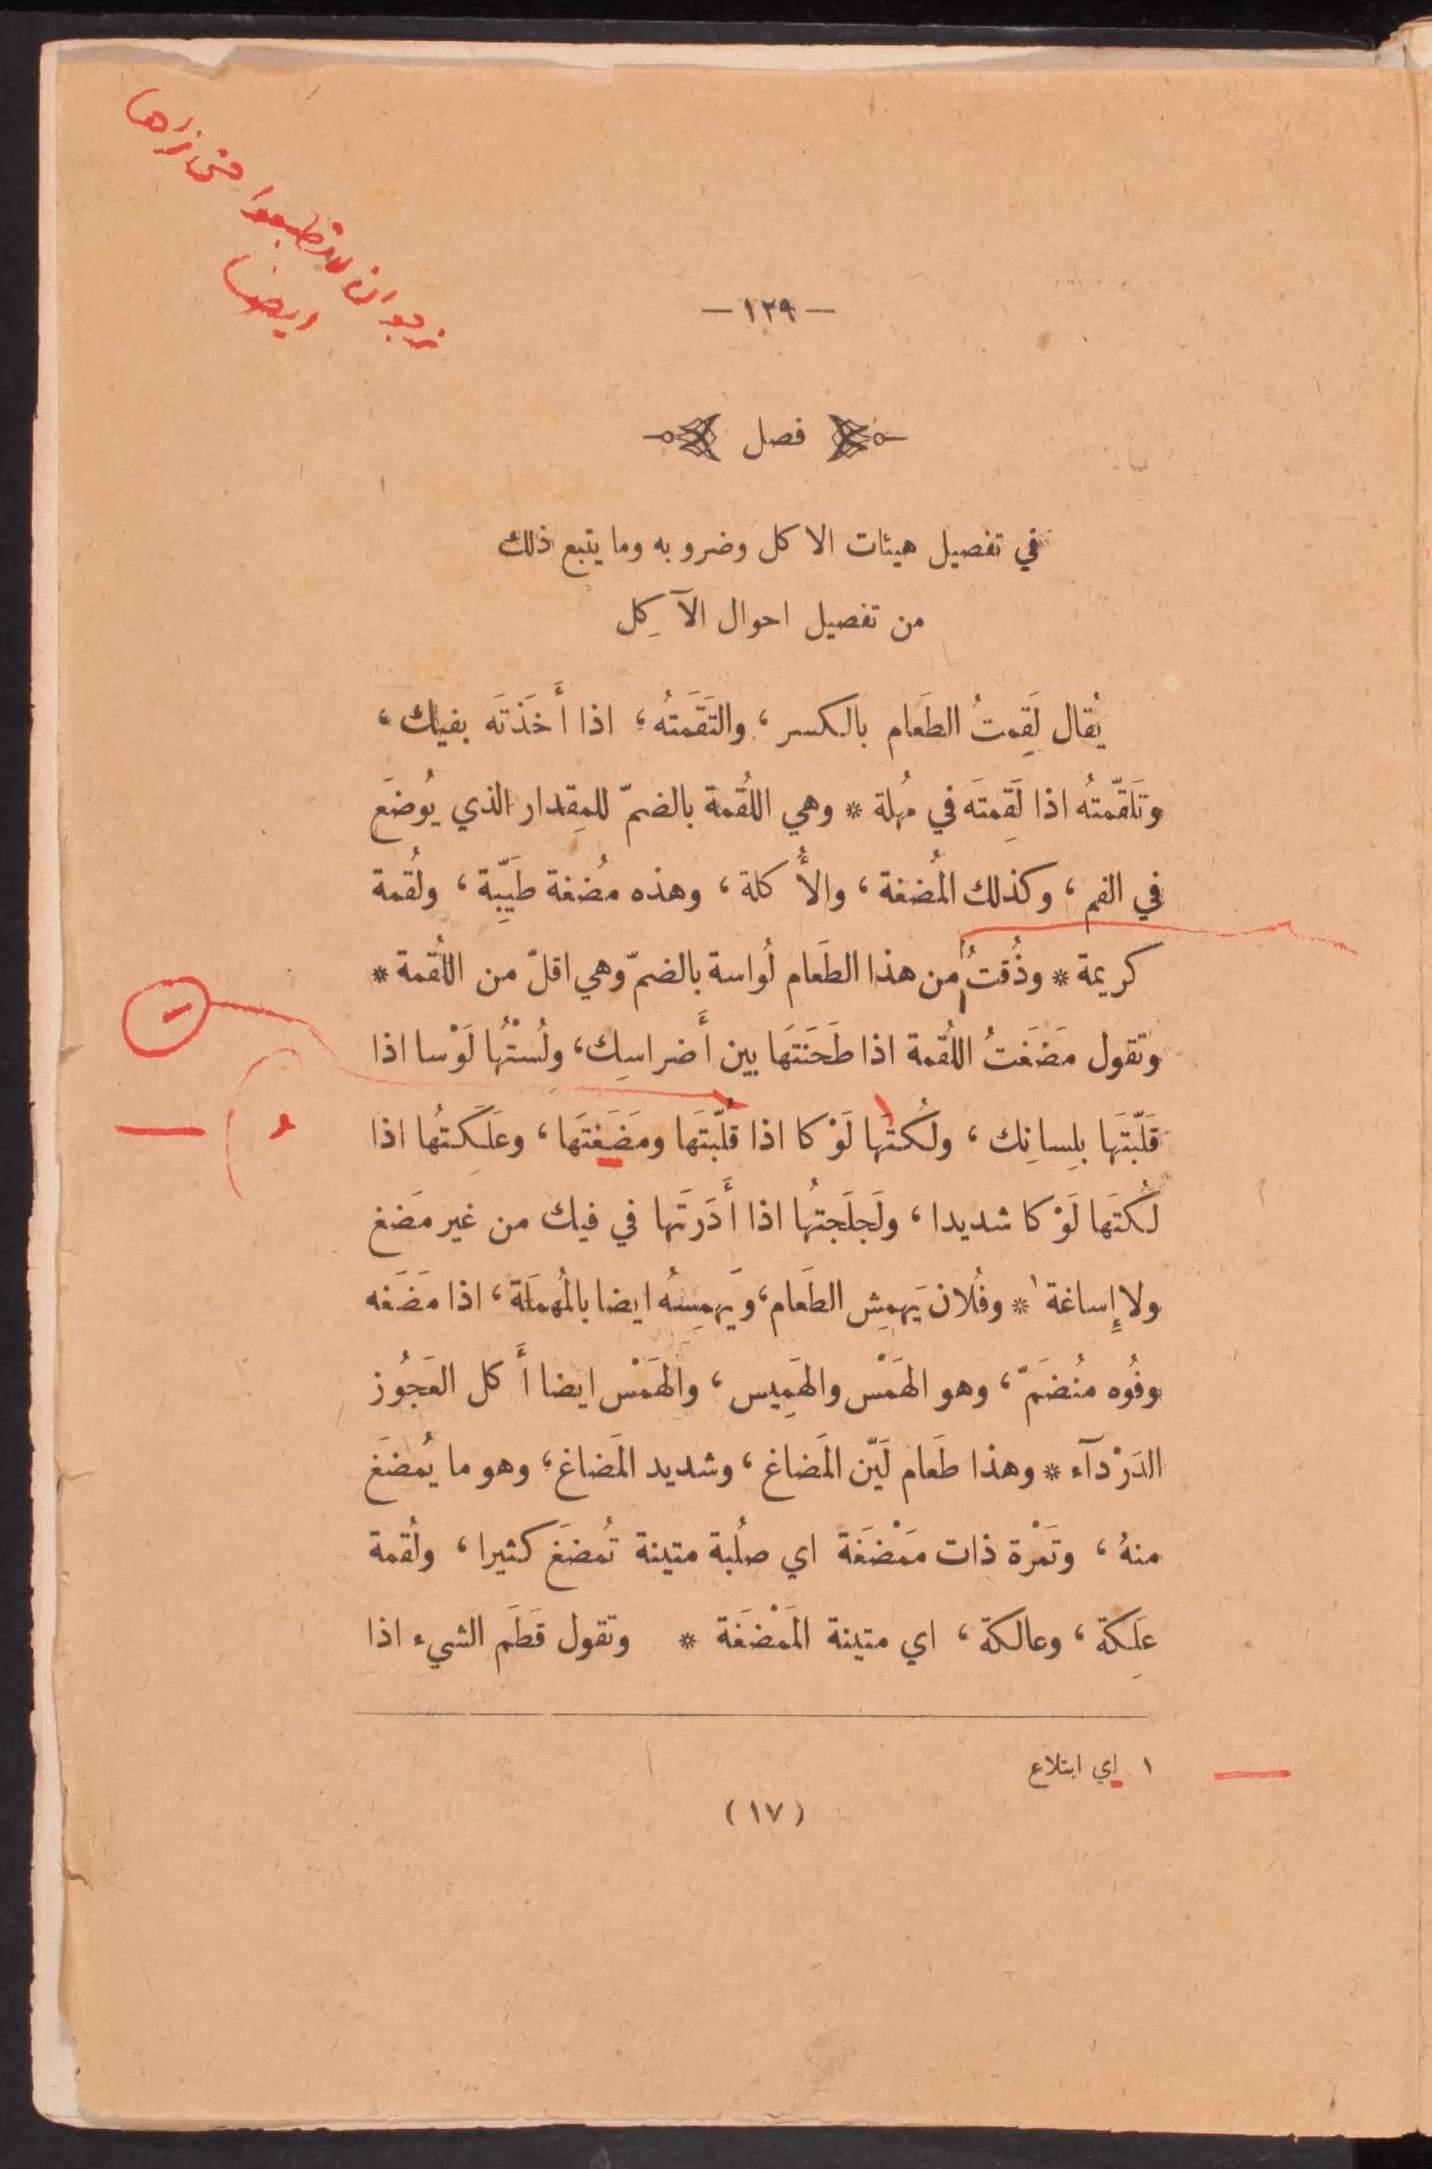 نرجو ان لا تطبعوا حتى نراها
ايضا
— ١٢٩ —
فصل
في تفصيل هيئات الاكل وضروبه وما يتبع ذلك
من تفصيل احوال الآكِل
يُقال لَقِمتُ الطَعَام بالكسر، والتَقَمتُه، اذا أَخَذتَه بفيك،
وتَلَقّمتُه اذا لَقِمتَه في مُهلة * وهي اللُقمة بالضمّ للمِقدار الذي يُوضَع
في الفم، وكذلك المُضغة، والأُكلة، وهذه مُضغة طَيِّبة، ولُقمة
كريمة * وذُقتُ من هذا الطَعَام لُواسة بالضمّ وهي اقلّ من اللُقمة *
وتقول مَضَغتُ اللُقمة اذا طَحَنتَها بين أَضراسِك، ولُسْتُها لَوْسا اذا
قَلّبتَها بلِسانِك، ولُكتَها لَوْكا اذا قُلّبتَها ومَضَغتَها، وعَلَكتُها اذا
لُكتَها لَوْكا شديدا، ولَجلَجتُها اذا أَدَرتَها في فيك من غير مَضغ
ولا إِساغة١ * وفُلان يَهمِش الطَعَام، ويَهمِسهُ ايضا بالمُهمَلَة، اذا مَضَغه
وفُوه مُنضَمّ، وهو الهَمْس والهَمِيس، والهَمْس ايضا أَكل العَجُوز
الدَرْدآء * وهذا طَعَام لَيّن المَضاغ، وشديد المَضاغ، وهو ما يُمضَغ
منهُ، وتَمْرة ذات مَمْضَغَة اي صلُبة متينة تُمضَغ كثيرا، ولُقمة
عَلِكة، وعالكة، اي متينة المَمْضَغَة * وتقول قَطَم الشيء اذا
١ اي ابتلاع
(١٧)